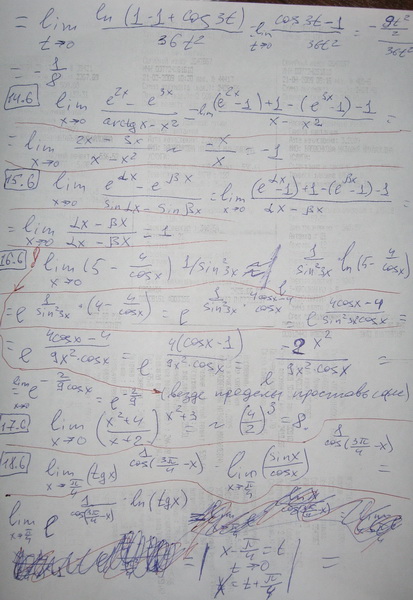 = lim t→0 ln(1-1+cos3t)/36t² = lim t→0 (cos3t-1)/36t² = (-9t²/2)/36t²
= -1/8
14.6 lim x→0 (e^2x - e^3x)/(arctgx - x²) = lim ((e^2x-1)+1-(e^3x-1)-1)/(x - x²) =
= lim x→0 (2x - 3x)/(x - x²) ~ -x/x = -1
15.6 lim x→0 (e^αx - e^βx)/(sinαx - sinβx) = lim x→0 ((e^αx-1)+1-(e^βx-1)-1)/(αx - βx)
= lim x→0 (αx - βx)/(αx - βx) = 1
16.6 lim x→0 (5 - 4/cosx)^1/sin²3x 1/sin²3x · ln(5 - 4/cosx)
= e^1/sin²3x · (4 - 4/cosx) = e^1/sin²3x · (4cosx-4)/cosx = e^(4cosx-4)/(sin²3xcosx)
= e^(4cosx-4)/(9x²·cosx) = e^4(cosx-1)/(9x²·cosx) = e^-2x²/(9x²·cosx)
lim x→0 e^-2/9cosx = e^-2/9 (везде пределы проставь сам)
17.6 lim x→0 ((x²+4)/(x+2))^x²+3 = ~ (4/2)³ = 8.
18.6 lim x→π/4 (tgx)^1/cos(3π/4-x) = lim x→π/4 (sinx/cosx)^1/cos(3π/4-x) =
lim x→π/4 e^1/cos(3π/4-x) · ln(tgx)
= | x-π/4=t
t→0
x=t+π/4 | =